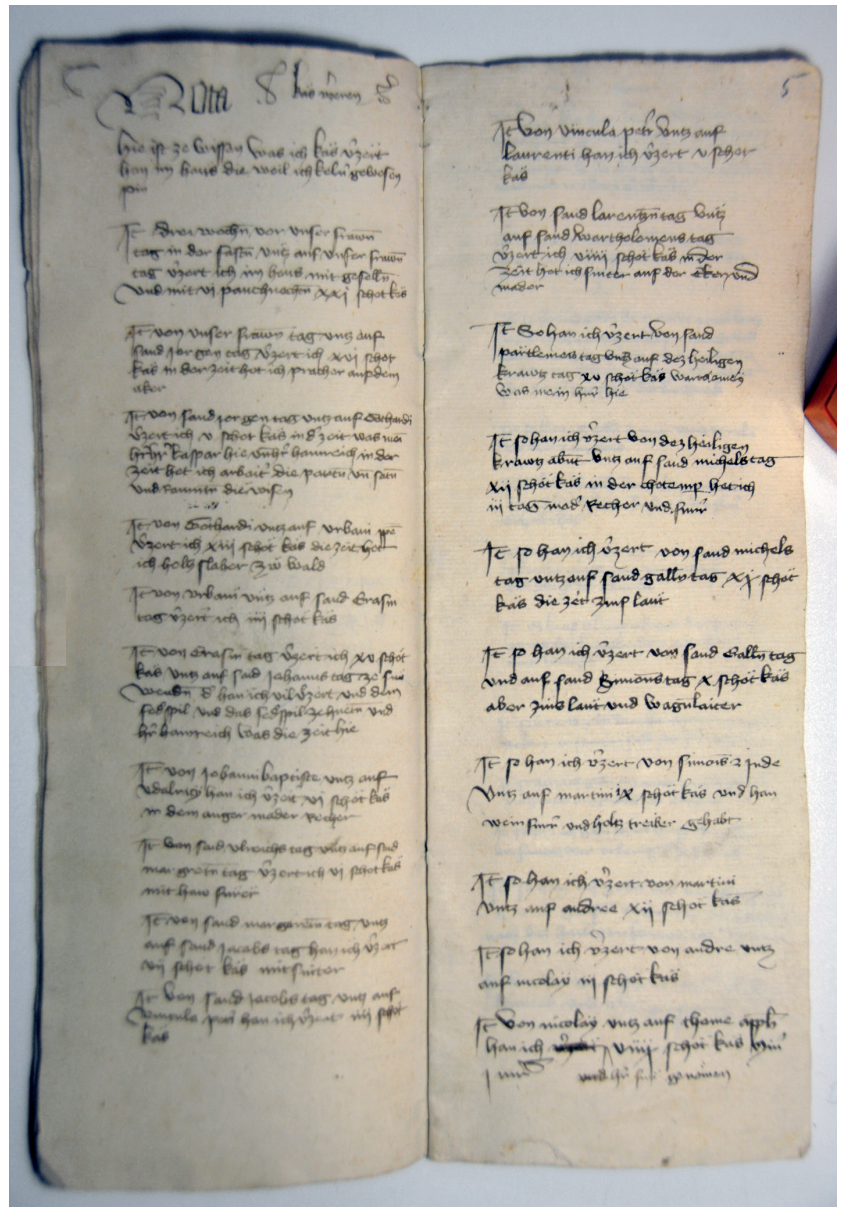 Nota kas
hie ist ze wissen was ich käs v̄zert
han im haus die weil ich keln̄ gewesen
pin
It drei wochn̄ vor unser frawn̄
tag in der fastn̄ untz auf unser frawn̄
tag v̄zert ich im hous mit geselln̄
und mit vi xxi schot käs
It von unser frawn̄ tag untz auf
sand Jorgen tag v̄zert ich xvi schot
käs in der zeit het ich pracher auf dem
aker
It von sand jorgen tag untz auf Gothardi
v̄zert ich v schot käs in d' zeit was mein
h'r kaspar hie und h'r hainreich in der
zeit het ich arbeit die
und die wisen
It von Gothardi untz auf urbani
v̄zert ich xiii schot käs die zeit het
ich holtz slaher zw wald
It von urbani untz auf sand Erasm
tag v̄zert ich iiii schot käs
It von Erasm tag v̄zert ich xv schot
käs untz auf sand Johanns tag ze sun
wendn̄ d' han ich vil v̄zert und dem
und das und
h'r hainreich was die zeit hie
It von Johanni baptiste untz auf
udalrici han ich v̄zert vi schot käs
in dem anger mader Recher
It von sand ulreichs tag untz auf sand
margretn̄ tag v̄zert ich vi schot käs
mit haw furer
It von sand margretn̄ tag untz
auf sand Jacobs tag han ich v̄zert
vii schot käs mit sniter
It von sand Jacobs tag untz auf
vincula petri han ich v̄zert iiii schot
käs
5
It von vincula petri untz auf
laurenti han ich v̄zert v schot
käs
It von sand larentzn̄ tag untz
auf sand Wartholomeus tag
v̄zert ich viiii schot käs in der
zeit het ich sniter auf der Eken und
mader
It So han ich v̄zert von sand
partlemeis tag untz auf dez heiligen
krawtz tag xv schot käs
was mein h'r hie
It so han ich v̄zert von dez heiligen
krawtz abn̄t untz auf sand michels tag
xii schot käs in der chotemp het ich
iii tag mad' Recher und furr
It so han ich v̄zert von sand michels
tag untz auf sand gally tag xi schot
käs die zeit zins laut
It so han ich v̄zert von sand Galln̄ tag
und auf sand Simons tag x schot käs
aber zins laut und wagnlaiter
It so han ich v̄zert von simonis 2 Jude
Untz auf martini ix schot käs und han
wein furn̄ und holtz treiber gehabt
It so han ich v̄zert von martini
untz auf andree xii schot käs
It so han ich v̄zert von andre untz
auf nicolay iii schot käs
It von nicolay untz auf thome appl̄i
han ich viiii schot käs
und genomen